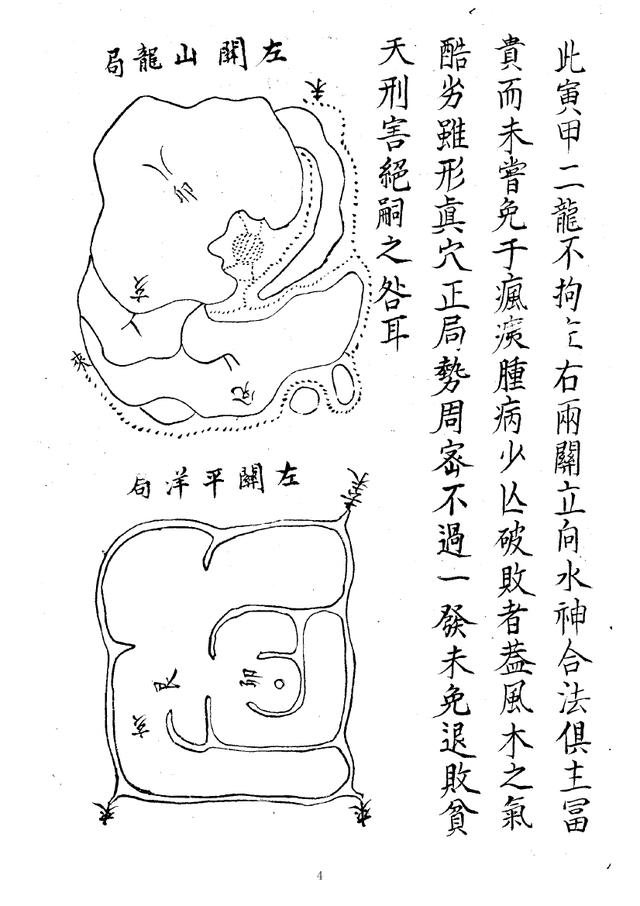 此寅甲二龍不拘左右兩關立向水神合法俱主冨
貴而未嘗免于瘋痍腫病少亾破敗者葢風木之氣
酷劣雖形眞穴正局勢周宻不過一發未免退敗貧
天刑害絕嗣之咎耳
左關山龍局
未
卯
亥
來
左關平洋局
卯
艮
亥
來
來
4